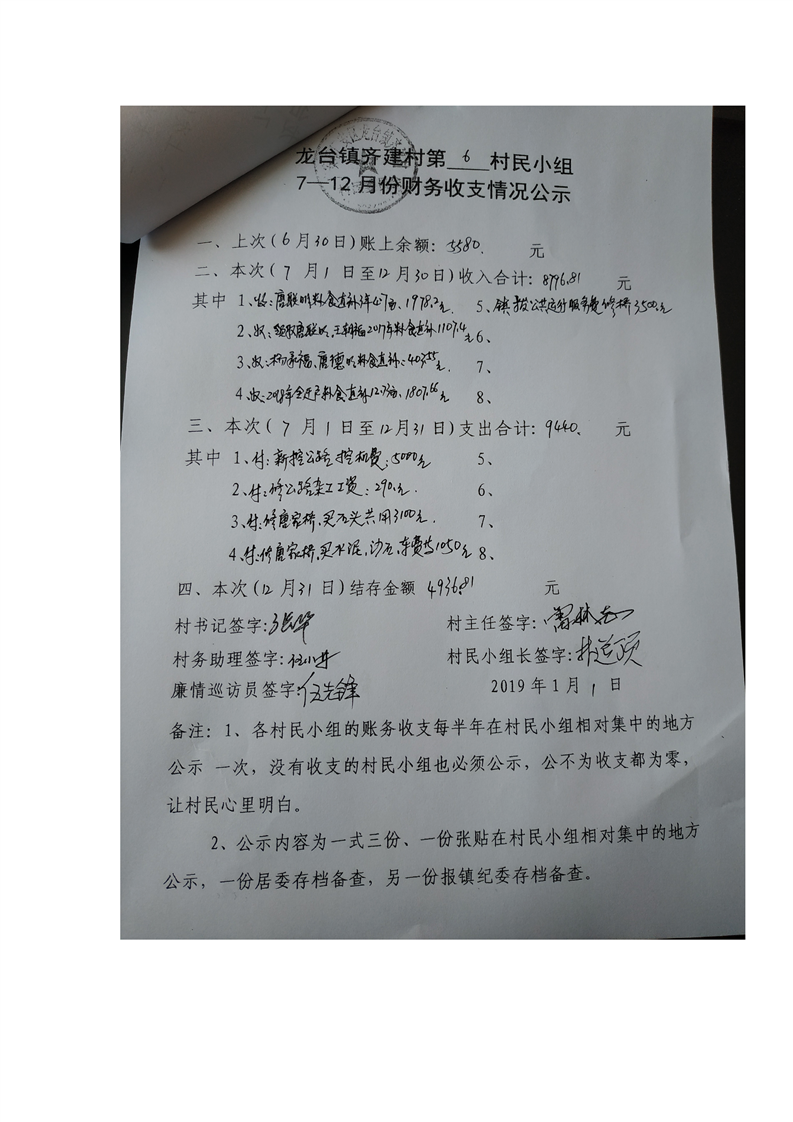 龙台镇齐建村第 6 村民小组
7—12 月份财务收支情况公示
一、上次(6月30日)账上余额: 5580. 元
二、本次(7月1日至12月30日)收入合计: 8796.81 元
其中 1、收:唐联明粮食直补3年 1978.2元 5、镇拨公共运行服务费修桥3500元
2、收: 唐联明、王朝福2017年粮食直补1107.4元 6、
3、收:杨永福、唐德明粮食直补:403.55元. 7、
4、收:2018年全社粮食直补12.73亩、1807.66元 8、
三、本次(7月1日至12月31日)支出合计: 9440. 元
其中 1、付:新挖公路挖机费:5000元 5、
2、付:修公路杂工工资:290元. 6、
3、付:修唐家桥,买石头共用3100元. 7、
4、付:修唐家桥,买水泥,沙石,车费等1050元 8、
四、本次(12月31日)结存金额 4936.81 元
村书记签字: 村主任签字:
村务助理签字: 村民小组长签字:
廉情巡访员签字:伍先锋 2019年1月1日
备注:1、各村民小组的账务收支每半年在村民小组相对集中的地方
公示 一次,没有收支的村民小组也必须公示,公不为收支都为零,
让村民心里明白。
2、公示内容为一式三份、一份张贴在村民小组相对集中的地方
公示,一份居委存档备查,另一份报镇纪委存档备查。